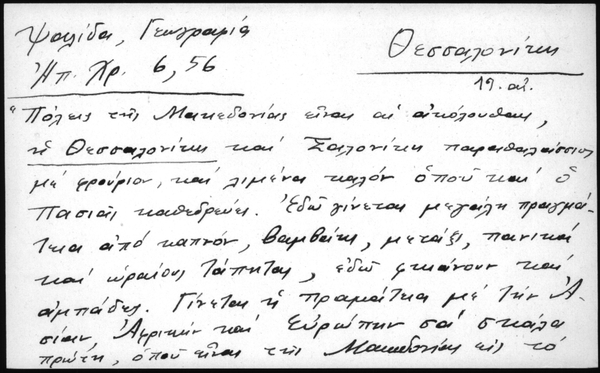 Ψαλίδα, Γεωγραφία
Θεσσαλονίκη
Ἠπ. Χρ. 6, 56
19. αἰ.
"Πόλεις τῆς Μακεδονίας εἶναι αἱ ἀκόλουθαι,
ἡ Θεσσαλονίκη καὶ Σαλονίκη παραθαλάσσιος
μὲ φρούριον, καὶ λιμένα καλὸν ὁποῦ καὶ ὁ
Πασιᾶς καθεδρεύει. Ἐδῶ γίνεται μεγάλη πραγμά-
τεια ἀπὸ καπνόν, βαμβάκι, μετάξι, πανικά
καὶ ὡραίους τάπητας, ἐδῶ φκιάνουν καὶ
ἀμπάδες. Γίνεται ἡ πραμάτεια μὲ τὴν Ἀ-
σίαν, Ἀφρικὴν καὶ Εὐρώπην σὰ σκάλα
πρώτη, ὁποῦ εἶναι τῆς Μακεδονίας εἰς τὸ